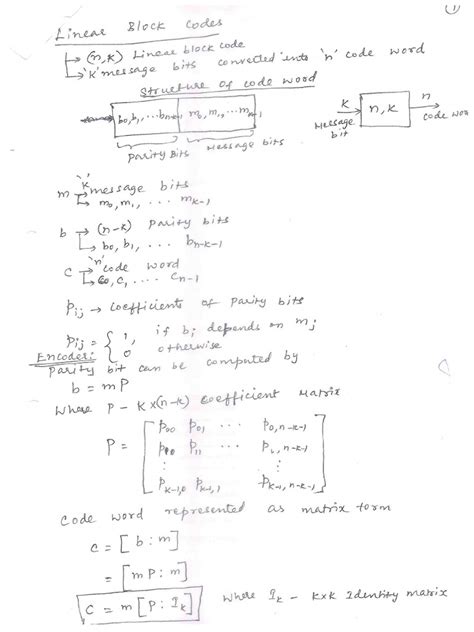 (1)
Linear Block Codes
→ (n,k) Linear block code
→ 'k' message bits converted into 'n' code word
Structure of code word
b0, b1, ... bn-k-1 m0, m1, ... mk-1
Parity Bits Message bits
k n, k n
Message bit code word
m → 'k' message bits
↳ m0, m1, ... mk-1
b → (n-k) parity bits
↳ b0, b1, ... bn-k-1
c → 'n' code word
↳ c0, c1, ... cn-1
Pij → coefficient of parity bits
Pij = { 1, if bi depends on mj
0 otherwise
Encoder:
Parity bit can be computed by
b = mP
Where P - K×(n-k) coefficient Matrix
P = [ p00 p01 ... p0,n-k-1
p10 p11 ... p1,n-k-1
⋮ ⋮
pk-1,0 pk-1,1 pk-1,n-k-1 ]
Code word represented as matrix form
c = [ b : m ]
= [ mP : m ]
C = m [ P : Ik ] where Ik - k×k Identity matrix